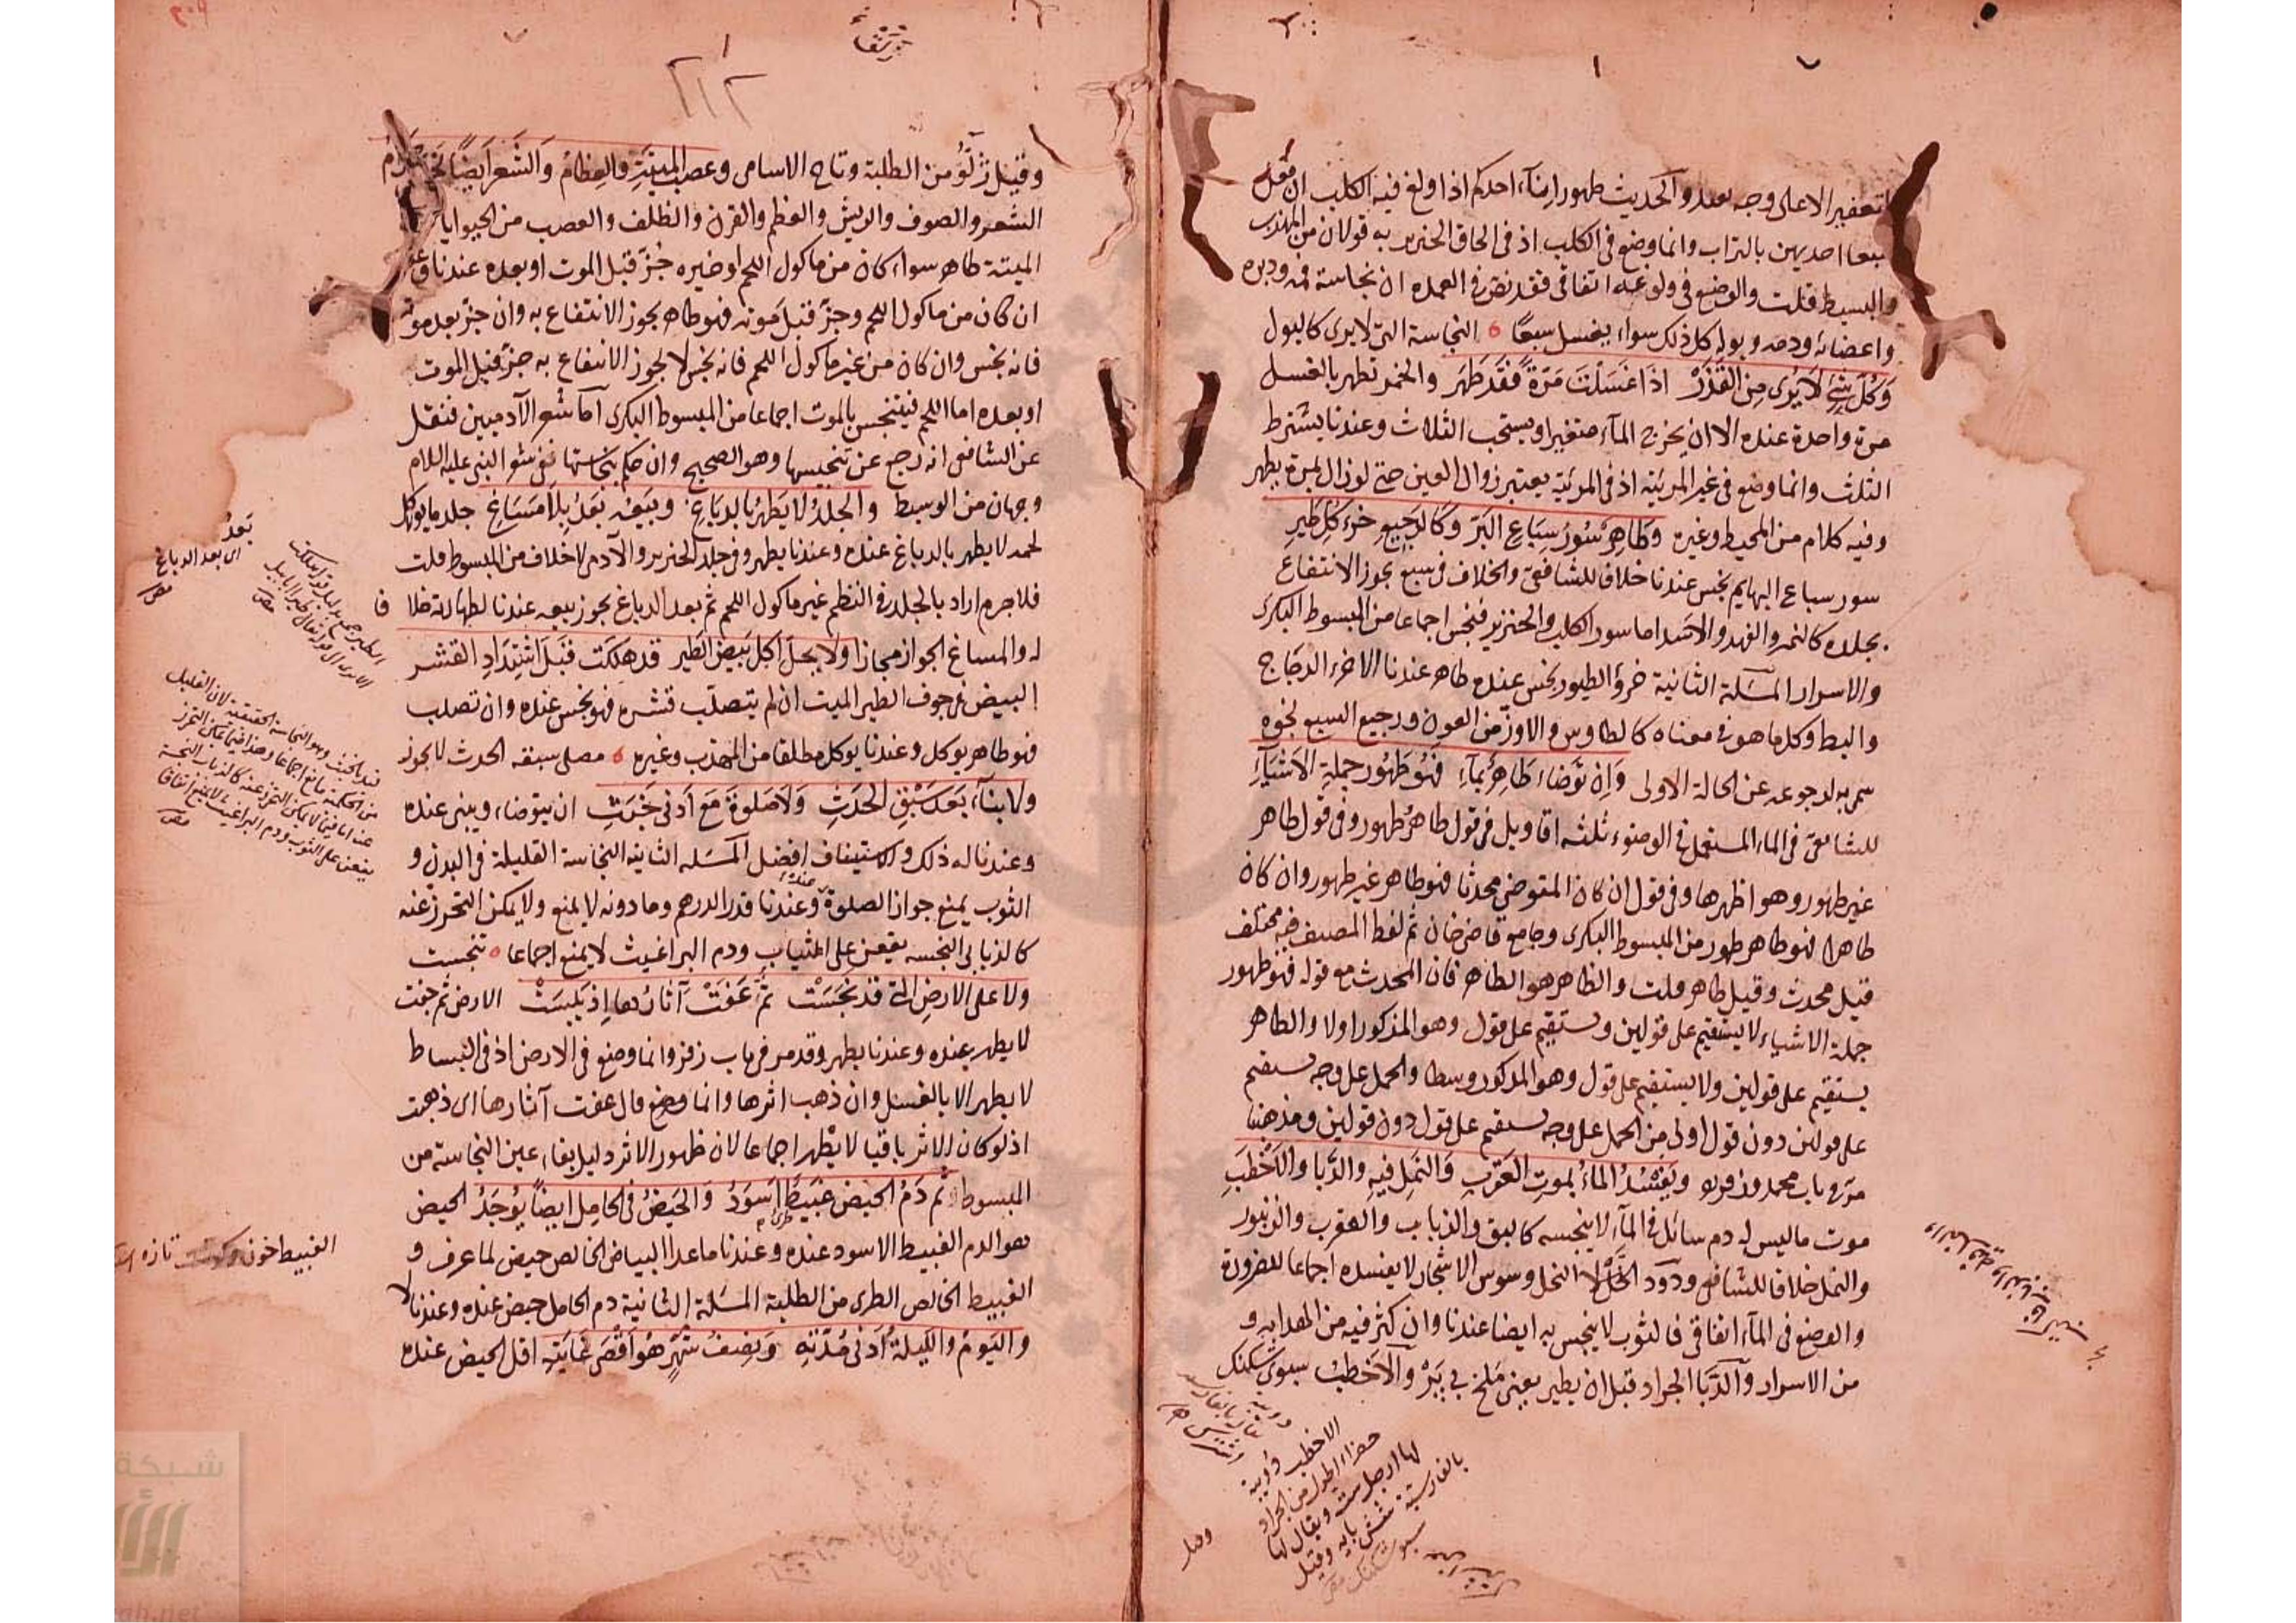 التعفير الاعلى وجه بعيد والحديث طهور اناء احدكم اذا ولغ فيه الكلب ان يغسل
سبعا احديهن بالتراب وانما وضع في الكلب اذ في الحاق الخنزير به قولان من المهذب
والبسيط قلت والوضع في ولوغه اتفاقي فقد نص في العمدة ان نجاسة فمه ودبره
واعضائه ودمه وبوله كل ذلك سواء يغسل سبعًا ه النجاسة التي لا يرى كالبول
وَكُلّ شَيْءٍ لَا يُرٰى مِنَ الْقَذَرْ اذَا غَسَلْتَ مَرَّةً فَقَدْ طَهَر والخمر تطهر بالغسل
مرة واحدة عنده الا ان يخرج الماء متغيرا ويستحب الثلاث وعندنا يشترط
الثلث وانما وضع في غير المرئية اذ في المرئية يعتبر زوال العين حتى لو زال بمرة يطهر
وفيه كلام من المحيط وغيره وَطَاهِرٌ سُؤْرُ سِبَاعِ البَرّ وَكَالرَجِيعِ خُرْءُ كُلِّ طَيْرِ
سور سباع البهايم نجس عندنا خلافا للشافعي والخلاف في سبع يجوز الانتفاع
بجلده كالنمر والفهد والاسد اما سور الكلب والخنزير فنجس اجماعا من المبسوط البكري
والاسرار المسَئلة الثانية خرؤ الطيور نجس عنده طاهر عندنا الا خرء الدجاج
والبط وكل ما هو في معناه كالطاوس والاوزّ من العون ورجيع السبع نجوه
سمي به لرجوعه عن الحالة الاولى وَاِن تَوَضّاء طَاهِرٌ بِمَآءِ فَهُوَ طَهُورُ جملةِ الاَشْيَآءِ
للشافعيّ في الماء المستعمل في الوضوء ثلثه اقاويل في قول طاهرٌ طهور وفي قول طاهر
غير طهور وهو اظهرها وفي قول ان كان المتوضي محدثا فهو طاهر غير طهور وان كان
طاهرا فهو طاهر طهور من المبسوط البكري وجامع قاضي خان ثم لفظ المصنف فيه مختلف
قيل محدث وقيل طاهر قلت والظاهر هو الطاهر فان المحدث مع قوله فهو طهور
جملة الاشياء لا يستقيم على قولين ويستقيم على قول وهو المذكور اولا والطاهر
يستقيم على قولين ولا يستقيم على قول وهو المذكور وسطا والحمل على وجه يستقيم
على قولين دون قول اولى من الحمل على وجه يستقيم على قول دون قولين ومذهبنا
مرّ في باب محمد وزفر وَيَفْسُدُ الماءُ بموتِ العَقْرَبِ وَالنَملِ فيهِ والدَّبا والاَخْطَبِ
موت ما ليس له دم سائل في الماء لا ينجسه كالبق والذباب والعقرب والزنبور
والنمل خلافا للشافعي ودود الخلّ النحل وسوس الاشجار لا يفسده اجماعا للضرورة
والوضع في الماء اتفاقي فالثوب لا ينجس به ايضا عندنا وان كثر فيه من الهدايه و
من الاسرار والدّبا الجراد قبل ان يطير يعني ملخ بي پَرْ والاَخطبُ سبوى شكنك
الاخطب دويبة
خضراء اطول من الجراد
لها ارجل ست ويقال لها
بالفارسية شش پايه وقيل
سبوى شكنك
وقيل
٢١٢
وقيل تزلّوُ من الطلبة وتاج الاسامي وعصب الميتةِ والعِظامُ وَالشَعرُ ايضًا نَجِسٌ حَرَامُ
الشعر والصوف والريش والعظم والقرن والظلف والعصب من الحيوانات
الميتة طاهر سواء كان من ماكول اللحم او غيره جُزّ قبل الموت او بعده عندنا وعنده
ان كان من ماكول اللحم وجزّ قبل موته فهو طاهر يجوز الانتفاع به وان جزّ بعد موته
فانه نجس وان كان من غير ماكول اللحم فانه نجس لا يجوز الانتفاع به جزّ قبل الموت
او بعده اما اللحم فيتنجس بالموت اجماعا من المبسوط البكري اما شعر الآدميين فنقل
عن الشافعي انه رجع عن تنجيسها وهو الصحيح وان حكم بنجاستها ففي شعر النبي عليه السلام
وجهان من الوسيط والجلدُ لا يَطهُرُ بالدِبَاغِ وبَيعُه بَعدُ بِلا مَسَاغِ جلد ما لا يوكل
لحمه لا يطهر بالدباغ عنده وعندنا يطهر وفي جلد الخنزير والآدمي لا خلاف من المبسوط قلت
فلا جرم اراد بالجلد في النظم غير ماكول اللحم ثم بعد الدباغ يجوز بيعه عندنا لطهارته خلافا
له والمساغ الجواز مجازا ولا يحلّ اكل بَيض الطَير قد هلكت قَبلَ اشتِدَادِ القشر
البيض في جوف الطير الميت ان لم يتصلّب قشره فهو نجس عنده وان تصلب
فهو طاهر يوكل وعندنا يوكل مطلقا من المهذب وغيره ه مصلي سبقه الحدث لا يجوز له
ولا بنآءَ بَعدَ سَبْقِ الحَدَثِ وَلا صَلوةَ مَعَ ادنى خَبَثِ ان يتوضاء ويبني عنده
وعندنا له ذلك والاستيناف افضل المسَئله الثانية النجاسة القليلة في البدن و
الثوب يمنع جواز الصلوة عنده وعندنا قدر الدرهم وما دونه لا يمنع ولا يمكن التحرز عنه
كالذباب النجسه يقعن على الثياب ودم البراغيث لا يمنع اجماعا ه تنجست
ولا على الارضِ التي قد نَجُسَتْ ثمّ عَفَتْ آثارُها اِذ يَبِسَتْ الارض ثم جفت
لا يطهر عنده وعندنا يطهر وقد مر في باب زفر وانما وضع في الارض اذ في البساط
لا يطهر الا بالغسل وان ذهب اثرها وانما وضع قال عفت آثارها اى ذهبت
اذ لو كان الاثر باقيا لا يطهر اجماعا لان ظهور الاثر دليل بقاء عين النجاسة من
المبسوط ثم دَمُ الحيض عَبيطٌ اسوَدُ وَالحَيضُ في الحامِل ايضًا يُوجَدُ الحيض
هو الدم العبيط الاسود عنده وعندنا ما عدا البياض الخالص حيض لما عرف و
العبيط الخالص الطرى من الطلبة المسَئلة الثانية دم الحامل حيض عنده وعندنا لا
واليَومُ والليلةُ ادنى مُدّتِهِ وَنِصفُ شَهرٍ هُو اَقْصى غايَتِهِ اقل الحيض عنده
بَعدُ
اى بعد الدباغ
قيد بالخبث وهو النجاسة الحقيقية لان القليل
من الحكمية مانع اجماعا وهذا فيما يمكن التحرز
عنه اما فيما لا يمكن التحرز عنه كالذباب النجسة
يقعن على الثوب ودم البراغيث لا يمنع اتفاقا
العبيط خون تازه